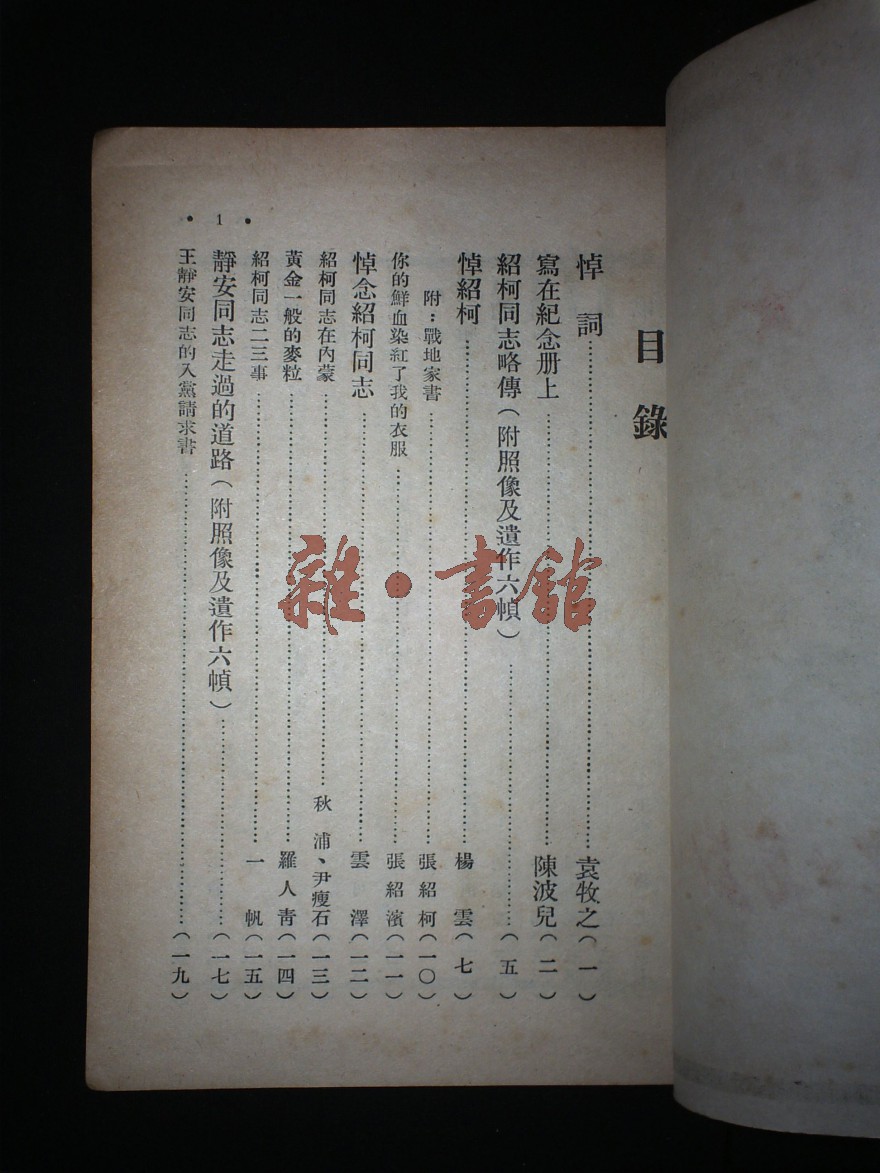 目錄
悼詞……袁牧之(一)
寫在紀念册上……陳波兒(二)
紹柯同志略傳(附照像及遺作六幀)……(五)
悼紹柯……楊雲(七)
附:戰地家書……張紹柯(一〇)
你的鮮血染紅了我的衣服……張紹濱(一一)
悼念紹柯同志……雲澤(一二)
紹柯同志在內蒙……秋浦、尹瘦石(一三)
黃金一般的麥粒……羅人靑(一四)
紹柯同志二三事……一帆(一五)
靜安同志走過的道路(附照像及遺作六幀)……(一七)
王靜安同志的入黨請求書……(一九)
• 1 •
雜·書館